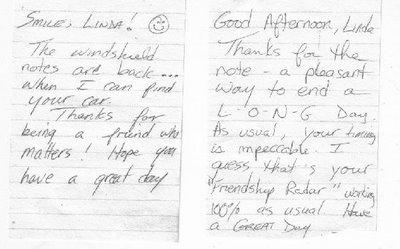 SMILE, LINDA!
The windshield
notes are back...
when I can find
your car.
Thanks for
being a friend who
matters! Hope you
have a great day
Good Afternoon, Linda
Thanks for the
note - a pleasant
way to end a
L-O-N-G Day.
As usual, your timing
is impeccable. I
guess that's your
"Friendship Radar" working
100% as usual. Have
a GREAT Day